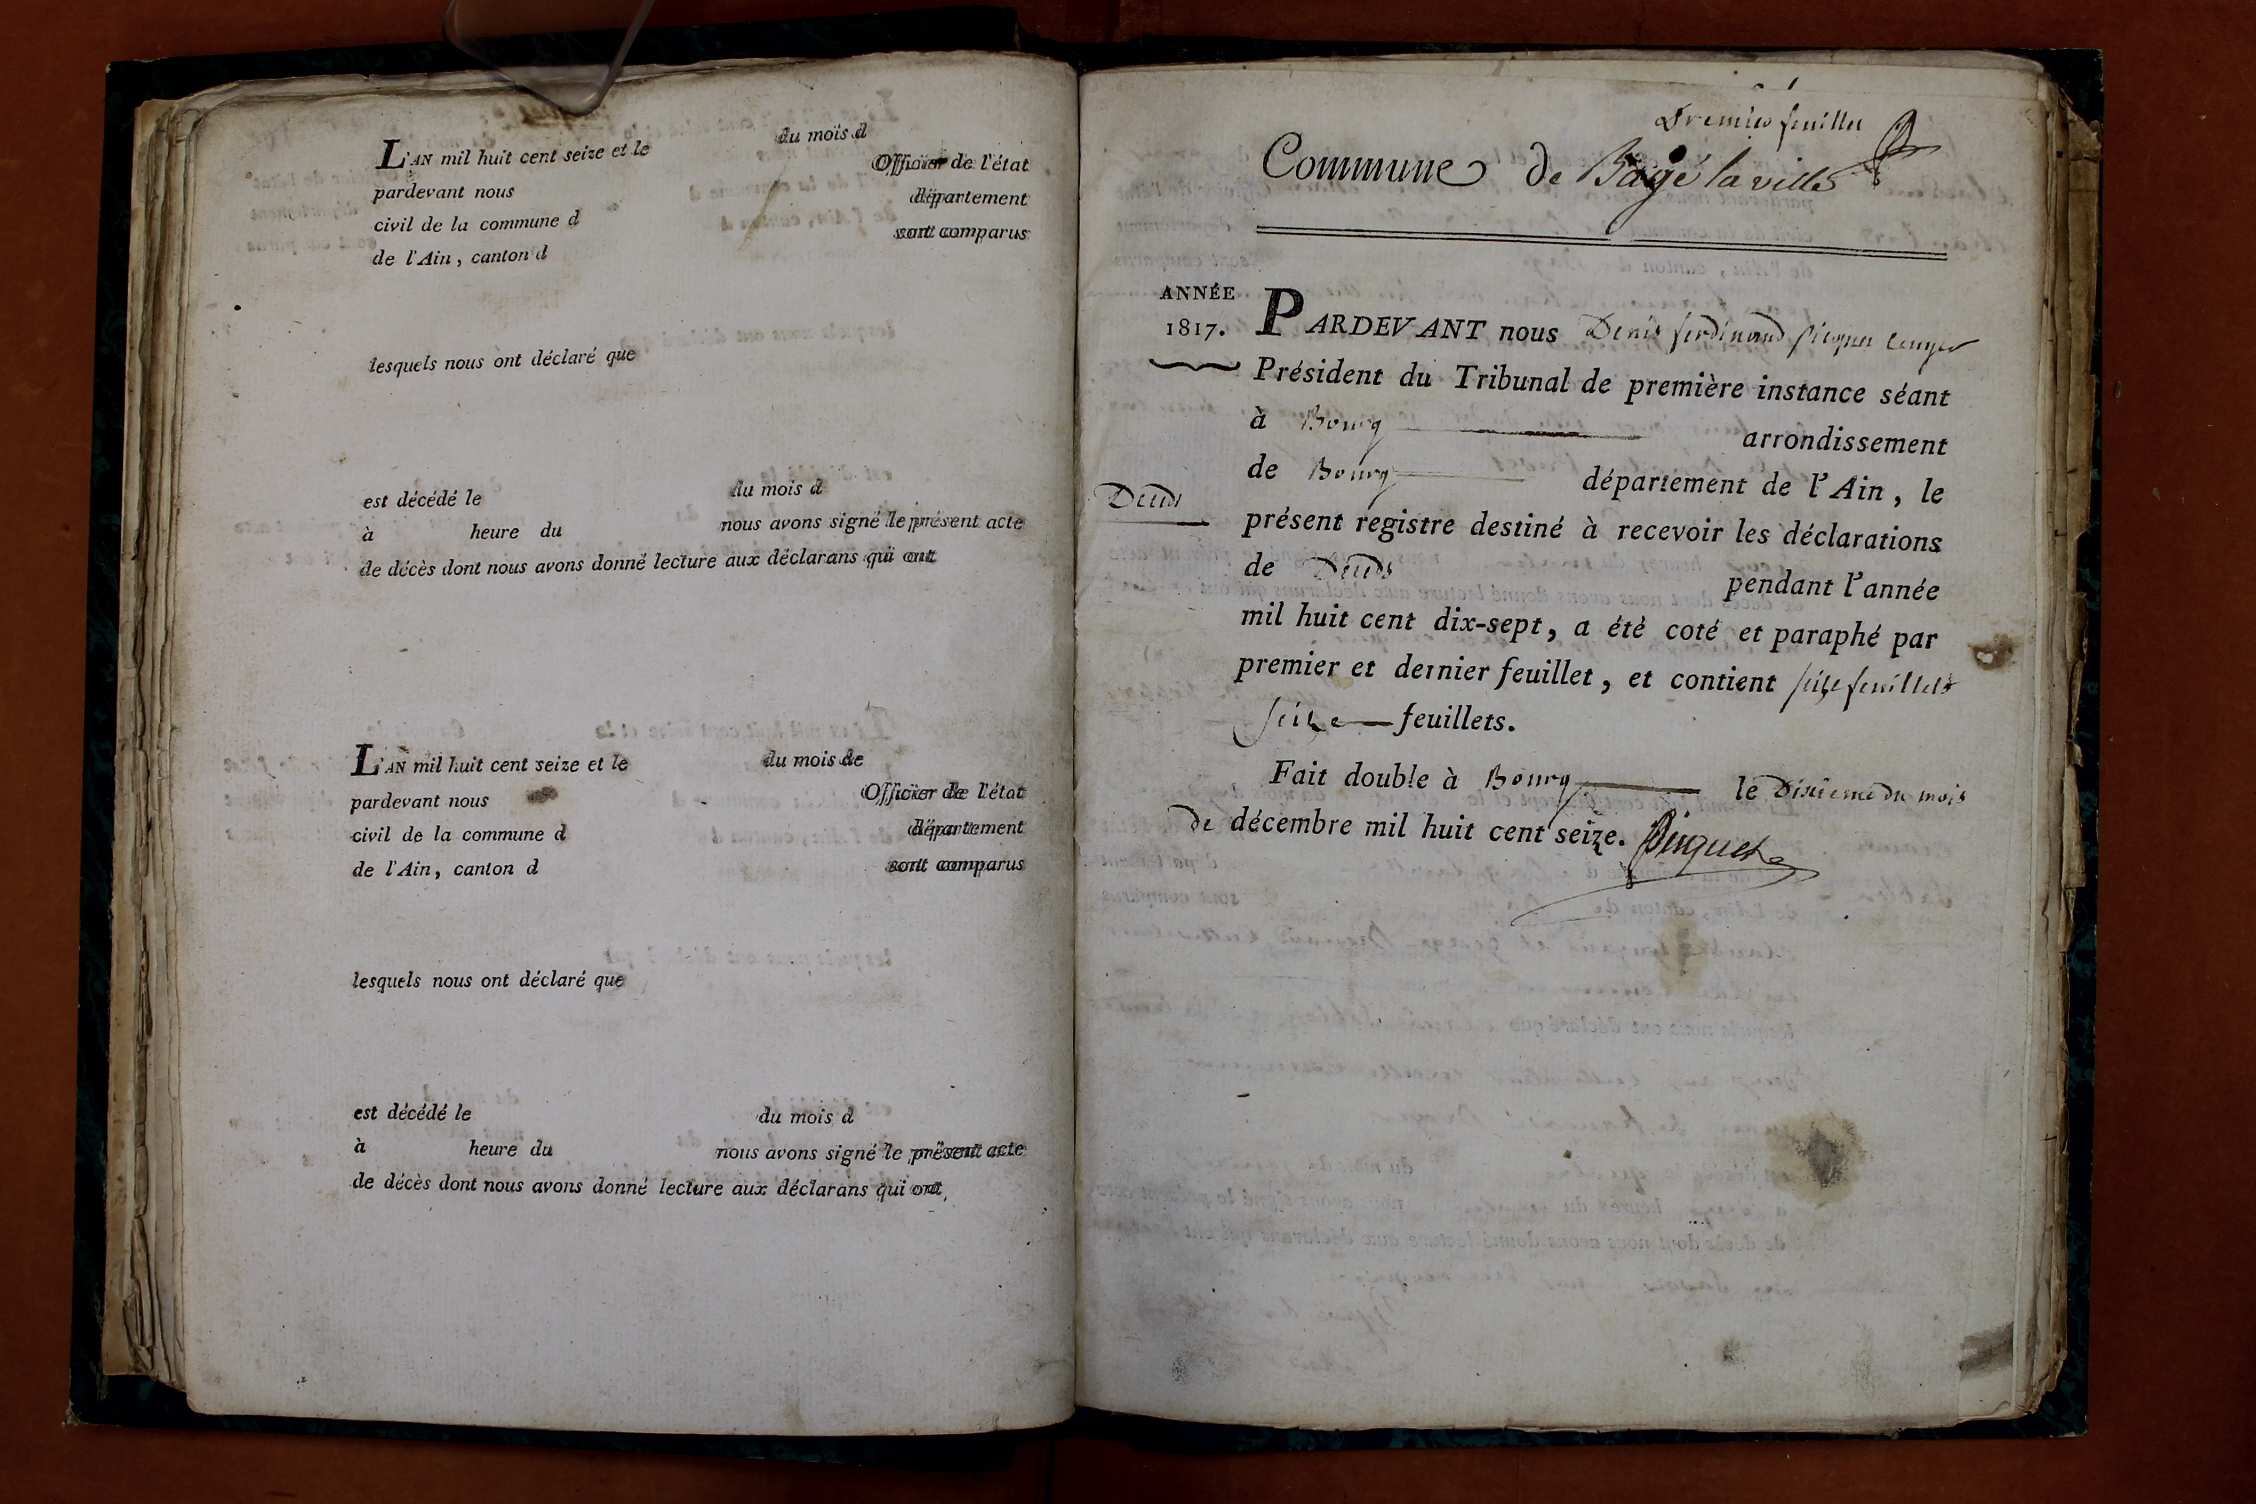 L'AN mil huit cent seize et le du mois d
pardevant nous Officier de l'état
civil de la commune d département
de l'Ain, canton d sont comparus
lesquels nous ont déclaré que
est décédé le du mois d
à heure du nous avons signé le présent acte
de décès dont nous avons donné lecture aux déclarans qui ont
L'AN mil huit cent seize et le du mois de
pardevant nous Officier de l'état
civil de la commune d département
de l'Ain, canton d sont comparus
lesquels nous ont déclaré que
est décédé le du mois d
à heure du nous avons signé le présent acte
de décès dont nous avons donné lecture aux déclarans qui ont
Premier feuillet
Commune de Bagé la ville
ANNÉE
1817.
PARDEVANT nous Denis ferdinand
Président du Tribunal de première instance séant
à Bourg arrondissement
de Bourg département de l'Ain, le
Décès
présent registre destiné à recevoir les déclarations
de Décès pendant l'année
mil huit cent dix-sept, a été coté et paraphé par
premier et dernier feuillet, et contient seize feuillets
seize feuillets.
Fait double à Bourg le Dixieme du mois
de décembre mil huit cent seize. Picquet